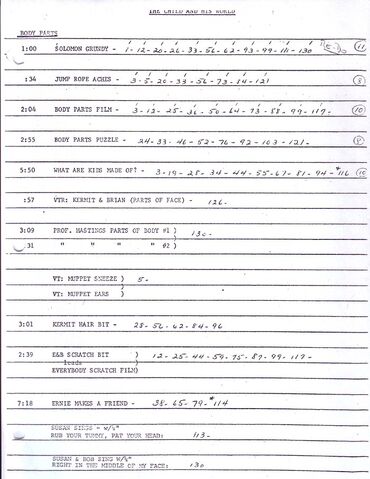 THE CHILD AND HIS WORLD
BODY PARTS
1:00 SOLOMON GRUNDY - 1-12-20-26-33-56-62-93-99-111-130 11
:34 JUMP ROPE ACHES - 3-5-20-33-56-73-84-121 8
2:04 BODY PARTS FILM - 3-12-25-36-50-64-73-88-99-117- 10
2:55 BODY PARTS PUZZLE - 24-33-46-52-76-92-103-121-
5:50 WHAT ARE KIDS MADE OF? - 3-19-28-34-44-55-67-81-94-*116 10
:57 VTR: KERMIT & BRIAN (PARTS OF FACE) - 126-
3:09 PROF. HASTINGS PARTS OF BODY #1 ) 130-
:31 " " " " #2 )
VT: MUPPET SNEEZE ) 5-
VT: MUPPET EARS )
3:01 KERMIT HAIR BIT - 28-56-62-84-96
2:39 E&B SCRATCH BIT ) 12-25-44-59-75-87-99-117-
leads )
EVERYBODY SCRATCH FILM)
7:18 ERNIE MAKES A FRIEND - 38-65-79-*114
SUSAN SINGS - W/
RUB YOUR TUMMY, PAT YOUR HEAD: 113-
SUSAN & BOB SING W/
RIGHT IN THE MIDDLE OF MY FACE: 130